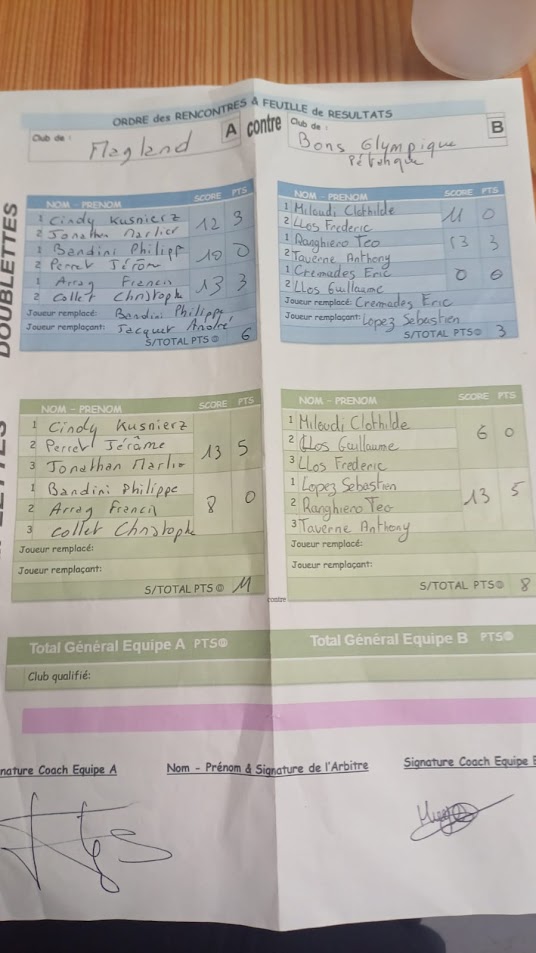 ORDRE des RENCONTRES & FEUILLE de RESULTATS
Club de : Magland A contre Club de : Bons Olympique Pétanque B
DOUBLETTES
NOM - PRENOM SCORE PTS
1 Cindy Kusnierz 12 3
2 Jonathan Marlier
1 Bandini Philipp 10 0
2 Perret Jérôme
1 Arrag Francis 13 3
2 Collet Christophe
Joueur remplacé: Bandini Philippe
Joueur remplaçant: Jacquet André
S/TOTAL PTS 6
NOM - PRENOM SCORE PTS
1 Miloudi Clothilde 11 0
2 LLos Frederic
1 Ranghiero Teo 13 3
2 Taverne Anthony
1 Cremades Eric 0 0
2 LLos Guillaume
Joueur remplacé: Cremades Eric
Joueur remplaçant: Lopez Sébastien
S/TOTAL PTS 3
NOM - PRENOM SCORE PTS
1 Cindy Kusnierz
2 Perret Jérôme 13 5
3 Jonathan Marlier
1 Bandini Philippe
2 Arrag Francis 8 0
3 Collet Christophe
Joueur remplacé:
Joueur remplaçant:
S/TOTAL PTS 11
NOM - PRENOM SCORE PTS
1 Miloudi Clothilde
2 LLos Guillaume 6 0
3 LLos Frederic
1 Lopez Sebastien
2 Ranghiero Teo 13 5
3 Taverne Anthony
Joueur remplacé:
Joueur remplaçant:
S/TOTAL PTS 8
contre
Total Général Equipe A PTS
Total Général Equipe B PTS
Club qualifié:
Signature Coach Equipe A
Nom - Prénom & Signature de l'Arbitre
Signature Coach Equipe